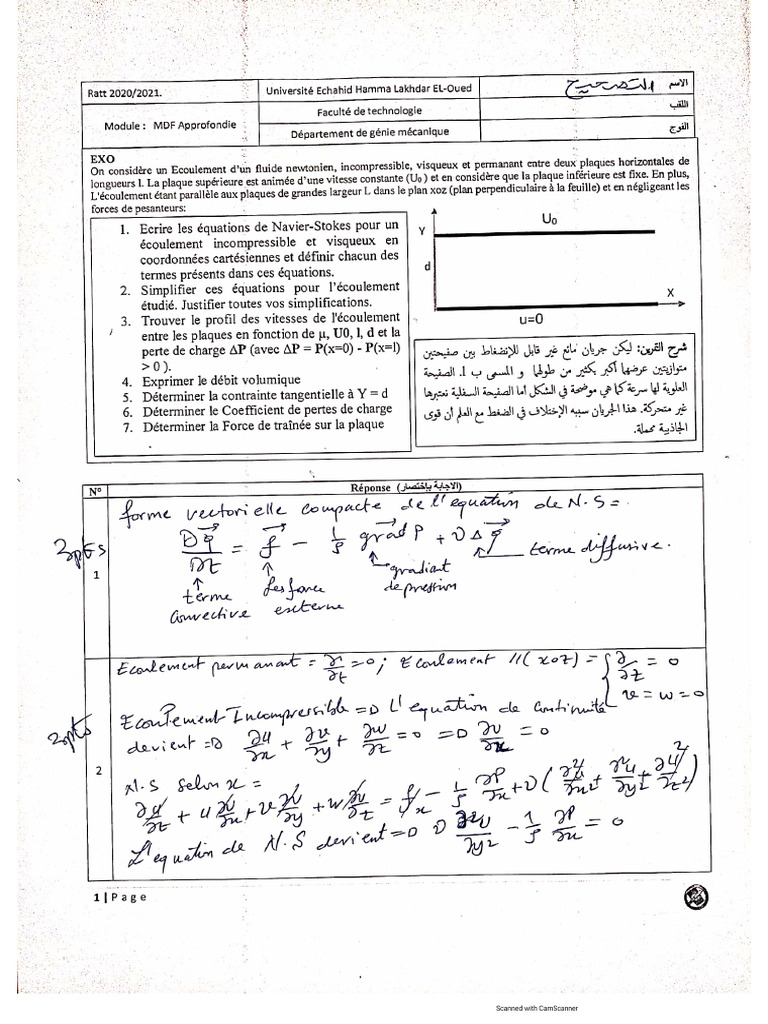 Ratt 2020/2021.
Université Echahid Hamma Lakhdar EL-Oued
الاسم
التصحيح
Module : MDF Approfondie
Faculté de technologie
اللقب
Département de génie mécanique
الفوج
EXO
On considère un Ecoulement d'un fluide newtonien, incompressible, visqueux et permanant entre deux plaques horizontales de
longueurs l. La plaque supérieure est animée d'une vitesse constante (U₀) et en considère que la plaque inférieure est fixe. En plus,
L'écoulement étant parallèle aux plaques de grandes largeur L dans le plan xoz (plan perpendiculaire à la feuille) et en négligeant les
forces de pesanteurs:
1. Ecrire les équations de Navier-Stokes pour un
écoulement incompressible et visqueux en
coordonnées cartésiennes et définir chacun des
termes présents dans ces équations.
2. Simplifier ces équations pour l'écoulement
étudié. Justifier toutes vos simplifications.
3. Trouver le profil des vitesses de l'écoulement
entre les plaques en fonction de µ, U0, l, d et la
perte de charge ΔP (avec ΔP = P(x=0) - P(x=l)
> 0 ).
4. Exprimer le débit volumique
5. Déterminer la contrainte tangentielle à Y = d
6. Déterminer le Coefficient de pertes de charge
7. Déterminer la Force de traînée sur la plaque
Y
U₀
d
X
u=0
شرح التمرين: ليكن جريان مائع غير قابل للإنضغاط بين صفيحتين
متوازيتين عرضها أكبر بكثير من طولها و المسمى ب l. الصفيحة
العلوية لها سرعة كما هي موضحة في الشكل أما الصفيحة السفلية نعتبرها
غير متحركة. هذا الجريان سببه الإختلاف في الضغط مع العلم أن قوى
الجاذبية مهملة.
N°
Réponse (الاجابة بإختصار)
forme vectorielle compacte de l'equation de N.S =
Dq⃗/Dt = f⃗ - 1/ρ grad⃗ P + ν Δq⃗
terme diffusive.
gradiant
de pression
2pts
1
terme
convective
les force
externe
Ecoulement permanant = ∂/∂t = 0 ; Ecoulement // (xoz) = { ∂/∂z = 0
v = w = 0
Ecoulement Incompressible => L'equation de continuité
devient => ∂u/∂x + ∂v/∂y + ∂w/∂z = 0 => ∂u/∂x = 0
2pts
2
N.S selon x =
∂u/∂t + u ∂u/∂x + v ∂u/∂y + w ∂u/∂z = fx - 1/ρ ∂P/∂x + ν ( ∂²u/∂x² + ∂²u/∂y² + ∂²u/∂z² )
L'equation de N.S devient => ν ∂²u/∂y² - 1/ρ ∂P/∂x = 0
1 | Page
Scanned with CamScanner